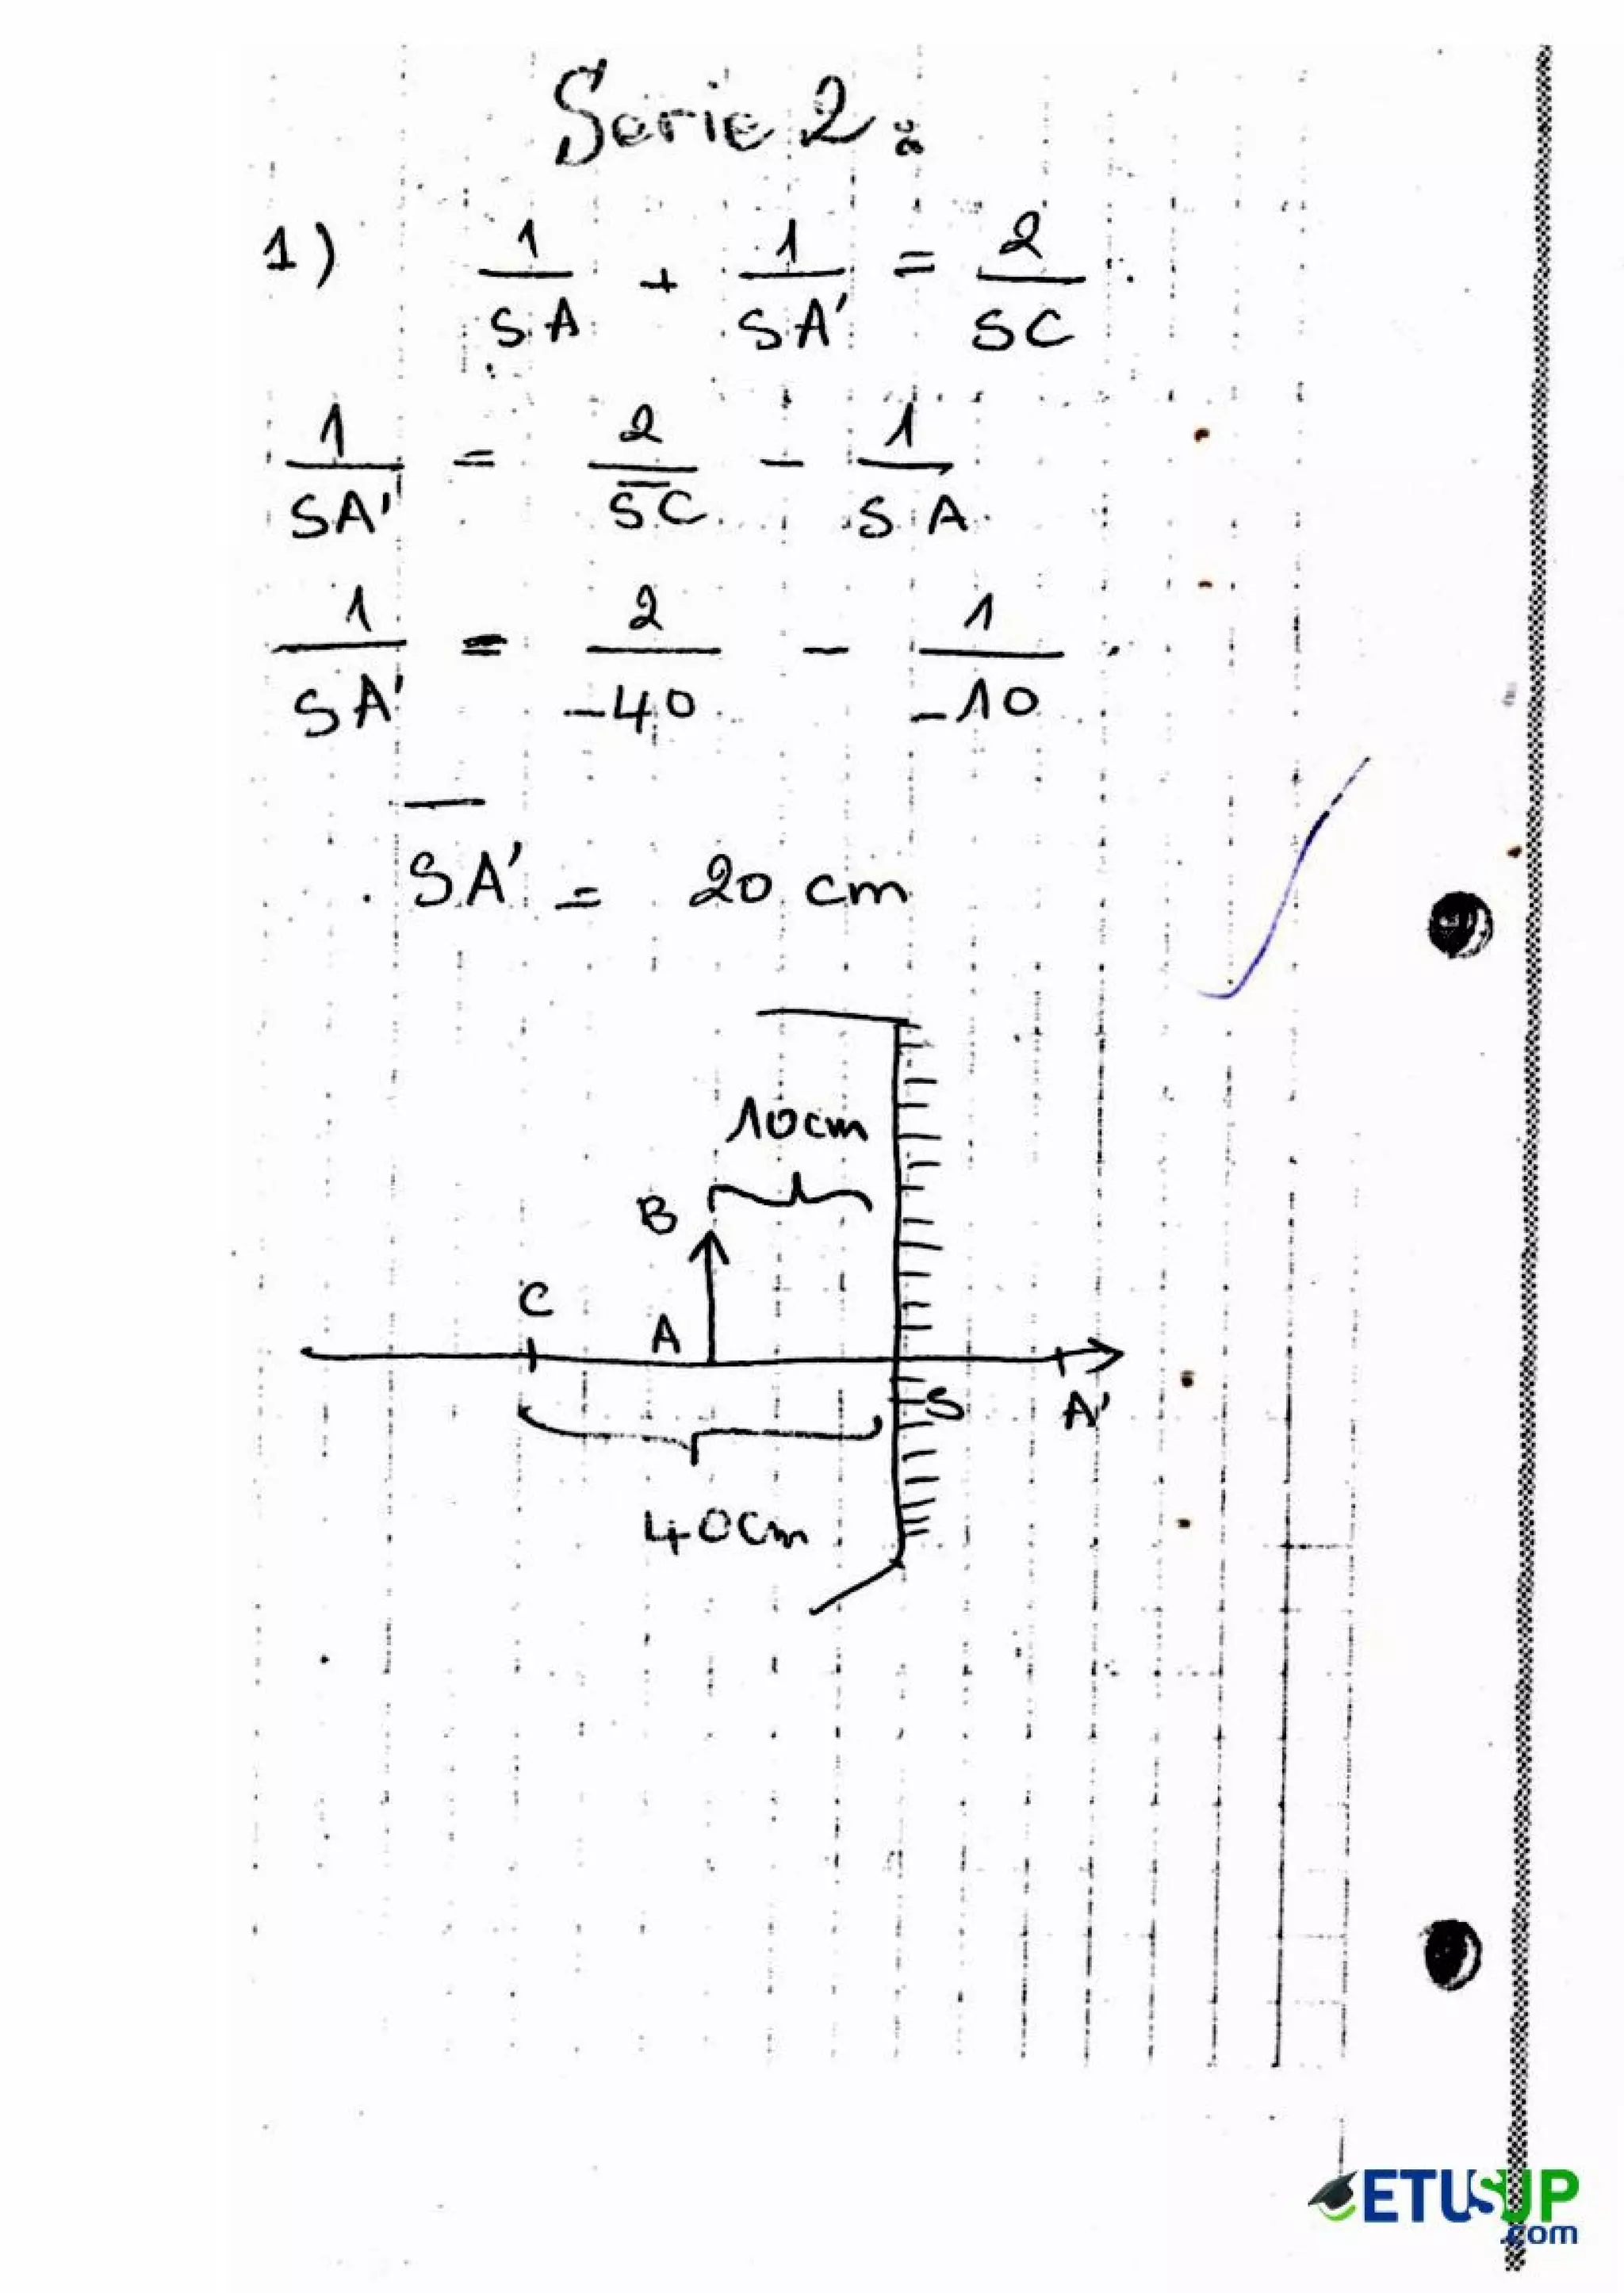 Serie 2:
1) 1/SA + 1/SA' = 2/SC
1/SA' = 2/S̅C̅ - 1/SA
1/SA' = 2/-40 - 1/-10
S̅A̅'̅ = 20 cm
10cm
B
C
A
S
A'
40cm
ETUSUP
.com